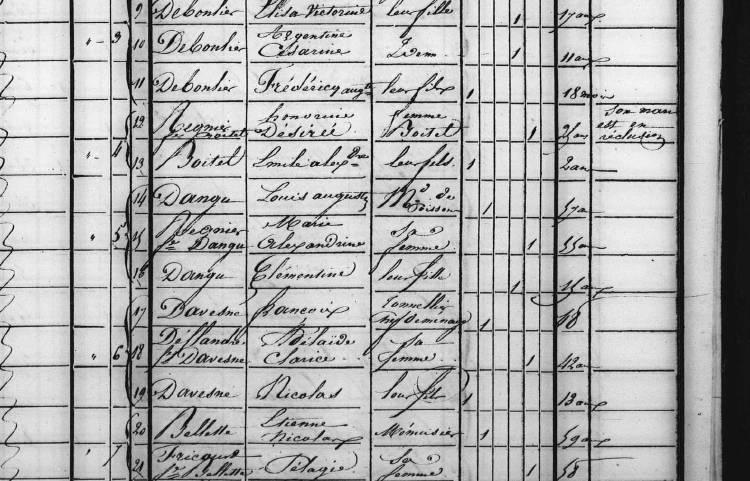 9 Debonlier Elisa Victorine leur fille 1 17 ans
" 3 10 Debonlier Argentine Césarine Idem 1 11 ans
11 Debonlier Frédéricq augte leur fils 1 18 mois
12 Regnier fe Boitel honorine Désirée femme Boitel 1 son mari est en réclusion
" 4 13 Boitel Emile alexdre leur fils 1 2 ans
14 Dangu Louis auguste Md de Poisson 1 57 a
" 5 15 Regnier fe Dangu Marie Alexandrine Sa femme 1 55 ans
16 Dangu Clémentine leur fille 1
17 Davesne françois 1 48
" 6 18 Déflandre fe Davesne Adélaïde Clarice Sa femme 1 42 ans
19 Davesne Nicolas leur fils 1 13 ans
20 Bellette Etienne Nicolas Ménuisier 1 59 ans
" 7 21 Fricourt fe Bellette Pélagie Sa femme 1 58